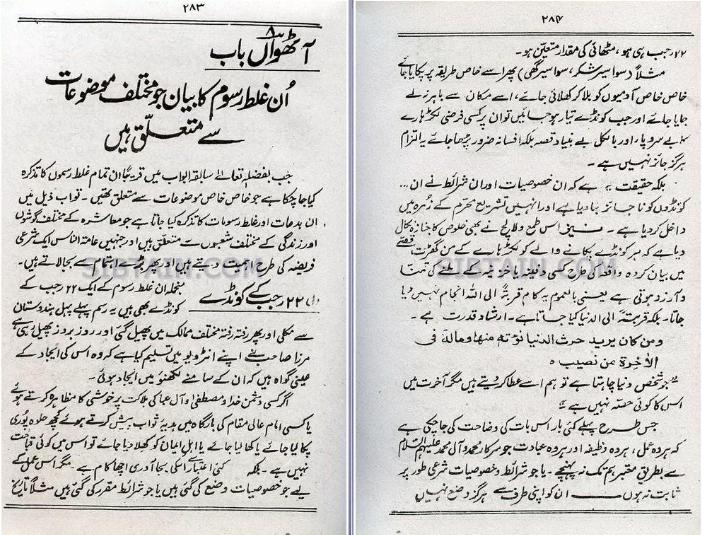 ۲۸۳
آٹھواں باب
اُن غلط رسوم کا بیان جو مختلف موضوعات
سے متعلّق ہیں
جب بفضلہٖ تعالےٰ سابقہ ابواب میں قریباً ان تمام غلط رسموں کا تذکرہ
کیا جا چکا ہے جو خاص خاص موضوعات سے متعلق تھیں ۔ تو اب ذیل میں
ان بدعات اور غلط رسومات کا تذکرہ کیا جاتا ہے جو معاشرہ کے مختلف گوشوں
اور زندگی کے مختلف شعبوں سے متعلق ہیں اور جنہیں عامۃ الناس ایک شرعی
فریضہ کی طرح سے بجالاتے ہیں۔
منجملہ ان غلط رسوم کے ایک ۲۲ رجب کے
(۱) ۲۲ رجب کے کونڈے
کونڈے بھی ہیں ۔ یہ رسم پہلے پہل ہندوستان
سے نکلی اور پھر رفتہ رفتہ مختلف ممالک میں پھیل گئی اور روز بروز پھیل رہی ہے
مرزا صاحب نے اپنے انٹرویو میں تسلیم کیا ہے کہ وہ اس کی ایجاد کے
عینی گواہ ہیں کہ ان کے سامنے لکھنؤ میں ایجاد ہوئی۔
اگر کسی دشمن خدا و مصطفیٰ و آل عبا کی ہلاکت پر خوشی کا مظاہرہ کرتے ہوئے
یا کسی امام عالی مقام کی بارگاہ میں ہدیۂ ثواب پیش کرتے ہوئے کچھ حلوہ پوری
پکا لیا جائے یا کھا لیا جائے یا اہل ایمان کو کھلا دیا جائے تو اس میں کوئی قباحت
نہیں ہے ۔ بلکہ کئی اعتبار سے اسکی بجا آوری اچھا کام ہے ۔ مگر اس عمل کے
لیے جو خصوصیات وضع کی گئی ہیں یا جو شرائط مقرر کی گئی ہیں مثلاً تاریخ
۲۸۴
۲۲ رجب ہی ہو ، مٹھائی کی مقدار متعین ہو۔
مثلاً (سوا سیر شکر ، سوا سیر گھی) پھر اسے خاص طریقہ پر پکایا جائے
خاص خاص آدمیوں کو بلا کر کھلائی جائے ، اسے مکان سے باہر نہ لے
جایا جائے اور جب کونڈے تیار ہو جائیں تو ان پر کسی فرضی لکڑہارے
کا بے سروپا ، اور بالکل بے بنیاد قصہ بلکہ افسانہ ضرور پڑھا جائے یہ التزام
ہرگز جائز نہیں ہے ۔
بلکہ حقیقت یہ ہے کہ ان خصوصیات اور ان شرائط نے ان
کونڈوں کو ناجائز بنا دیا ہے اور انہیں تشریع محرم کے زمرہ میں
داخل کر دیا ہے ۔ اس طمع و لالچ نے بھی خلوص کا جنازہ نکال
دیا ہے کہ ہر کونڈے پکانے والے کو لکڑہارے کے من گھڑت قصے
میں بیان کردہ واقعہ کی طرح کسی دفینہ یا خزینہ کے ملنے کی تمنا
و آرزو ہوتی ہے یعنی بالعموم یہ کام قربۃً الی اللہ انجام نہیں دیا
جاتا۔ بلکہ قربۃ الی الدنیا کیا جاتا ہے ۔ ارشاد قدرت ہے ۔
ومن کان یرید حرث الدنیا نؤتہ منہا ومالہ فی
الاٰخرۃ من نصیب ہ
" جو شخص دنیا چاہتا ہے تو ہم اسے عطا کر دیتے ہیں مگر آخرت میں
اس کا کوئی حصّہ نہیں ہے "
جس طرح پہلے کئی بار اس بات کی وضاحت کی جا چکی ہے
کہ ہر وہ عمل ، ہر وہ وظیفہ اور ہر وہ عبادت جو سرکار محمد و آل محمد علیہم السلام
سے بطریق معتبر ہم تک نہ پہنچے ۔ یا جو شرائط و خصوصیات شرعی طور پر
ثابت نہ ہوں ان کو اپنی طرف سے ہرگز وضع نہیں
SIBTAIN.COM
SIBTAIN.COM